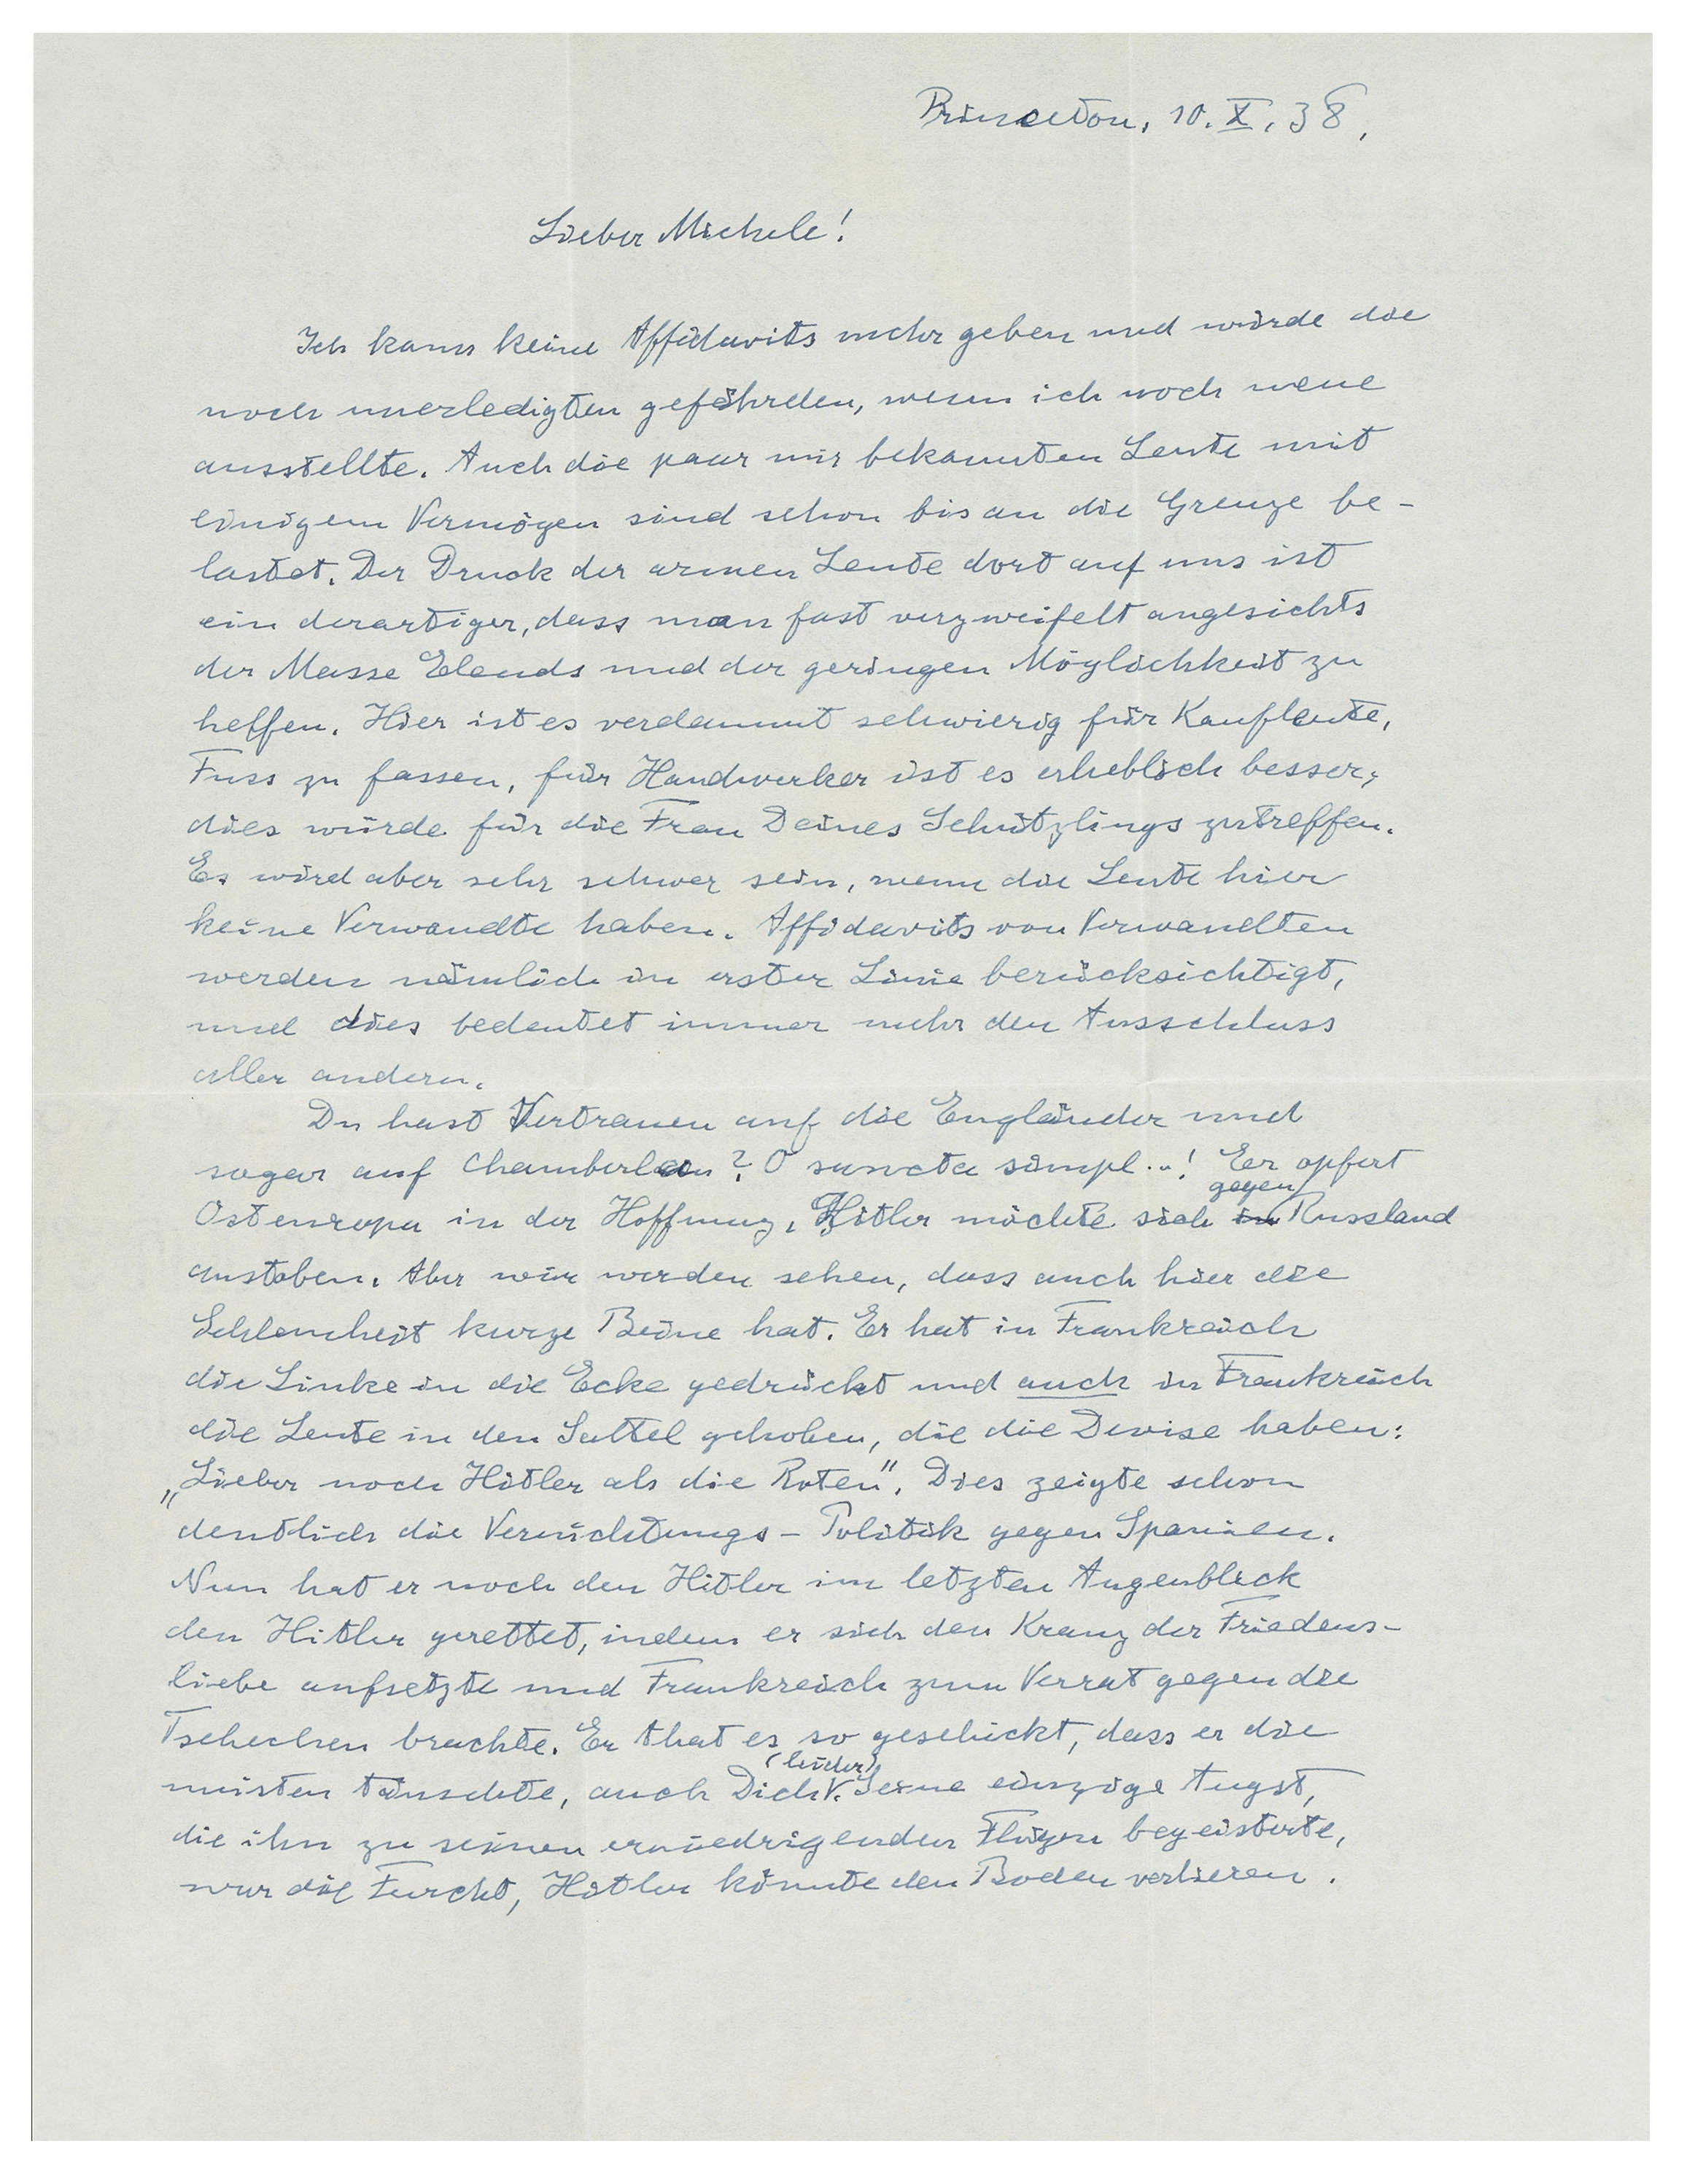 Princeton, 10. X. 38.
Lieber Michele!
Ich kann keine Affidavits mehr geben und würde die
noch unerledigten gefährden, wenn ich noch neue
ausstellte. Auch die paar mir bekannten Leute mit
einigem Vermögen sind schon bis an die Grenze be-
lastet. Der Druck der armen Leute dort auf uns ist
ein derartiger, dass man fast verzweifelt angesichts
der Masse Elends und der geringen Möglichkeit zu
helfen. Hier ist es verdammt schwierig für Kaufleute,
Fuss zu fassen, für Handwerker ist es erheblich besser;
dies würde für die Frau Deines Schützlings zutreffen.
Es wird aber sehr schwer sein, wenn die Leute hier
keine Verwandte haben. Affidavits von Verwandten
werden nämlich in erster Linie berücksichtigt,
und dies bedeutet immer mehr den Ausschluss
aller andern.
Du hast Vertrauen auf die Engländer und
sogar auf Chamberlain? O sancta simpl..! Er opfert
Osteuropa in der Hoffnung, Hitler möchte sich gegen Russland
austoben. Aber wir werden sehen, dass auch hier die
Schlauheit kurze Beine hat. Er hat in Frankreich
die Linke in die Ecke gedrückt und auch in Frankreich
die Leute in den Sattel gehoben, die die Devise haben:
„Lieber noch Hitler als die Roten". Dies zeigte schon
deutlich die Vernichtungs-Politik gegen Spanien.
Nun hat er noch den Hitler im letzten Augenblick
den Hitler gerettet, indem er sich den Kranz der Friedens-
liebe aufsetzte und Frankreich zum Verrat gegen die
Tschechen brachte. Er that es so geschickt, dass er die
meisten täuschte, auch Dich (leider). Seine einzige Angst,
die ihn zu seinen erniedrigenden Flügen begeisterte,
war die Furcht, Hitler könnte den Boden verlieren.